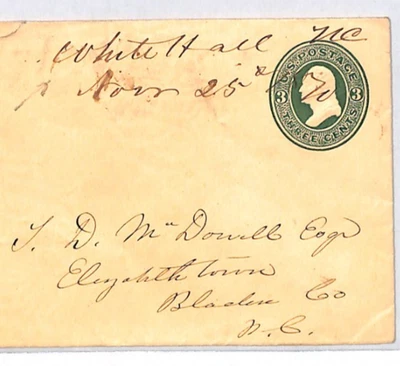 White Hall NC
Nov 25th /70
U.S. POSTAGE
3 3
THREE CENTS
T. D. McDowell Esqr
Elizabethtown
Bladen Co
N.C.